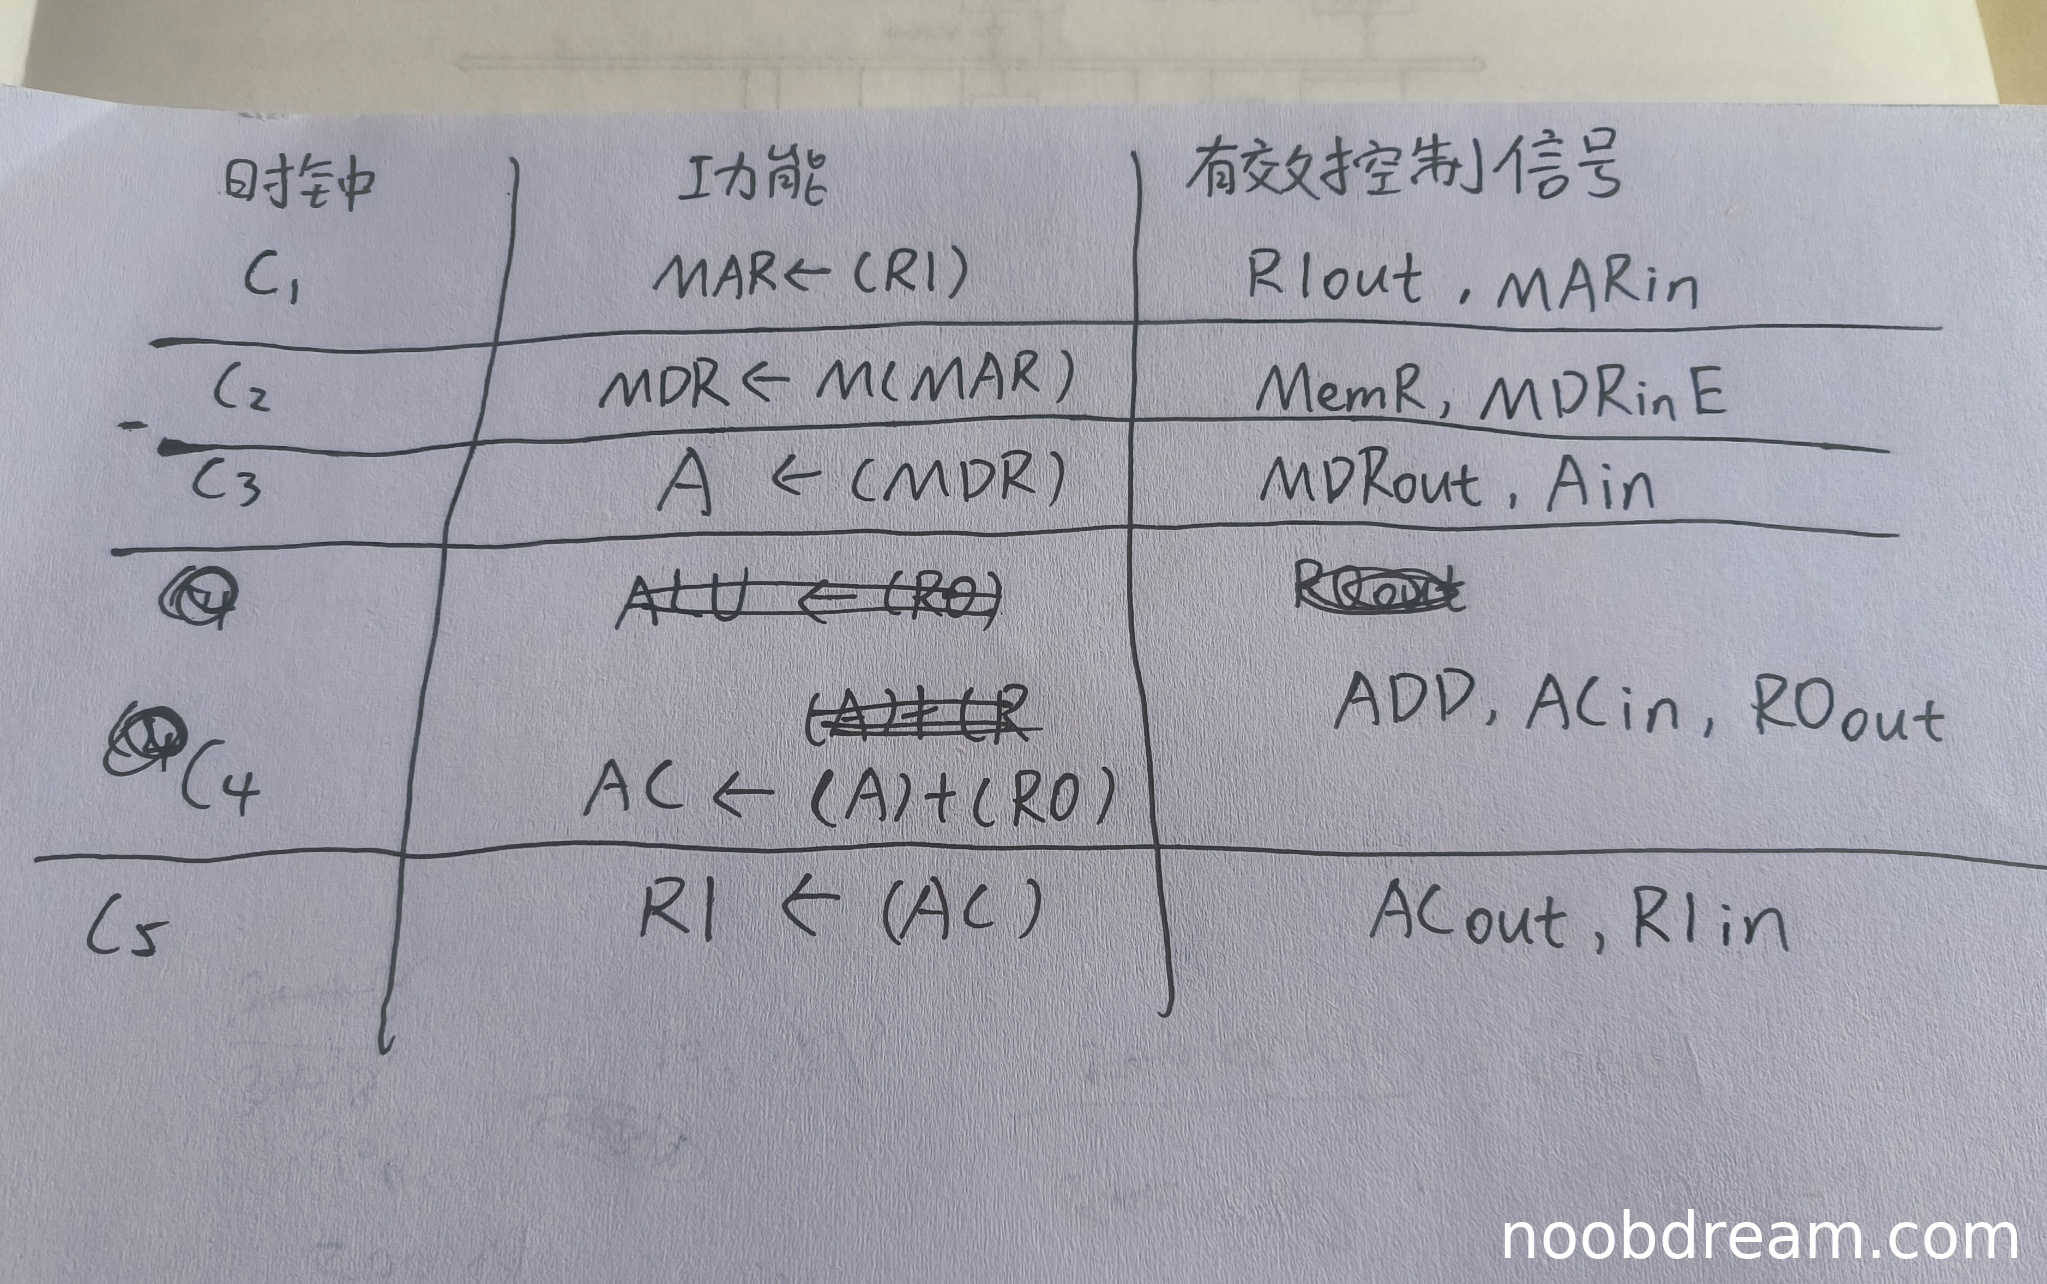 时钟 功能 有效控制信号
C1 MAR←(R1) R1out, MARin
C2 MDR←M(MAR) MemR, MDRinE
C3 A ←(MDR) MDRout, Ain
ALU ←(R0)
(A)+(R
ADD, ACin, R0out
C4 AC←(A)+(R0)
C5 R1 ←(AC) ACout, R1in
noobdream.com